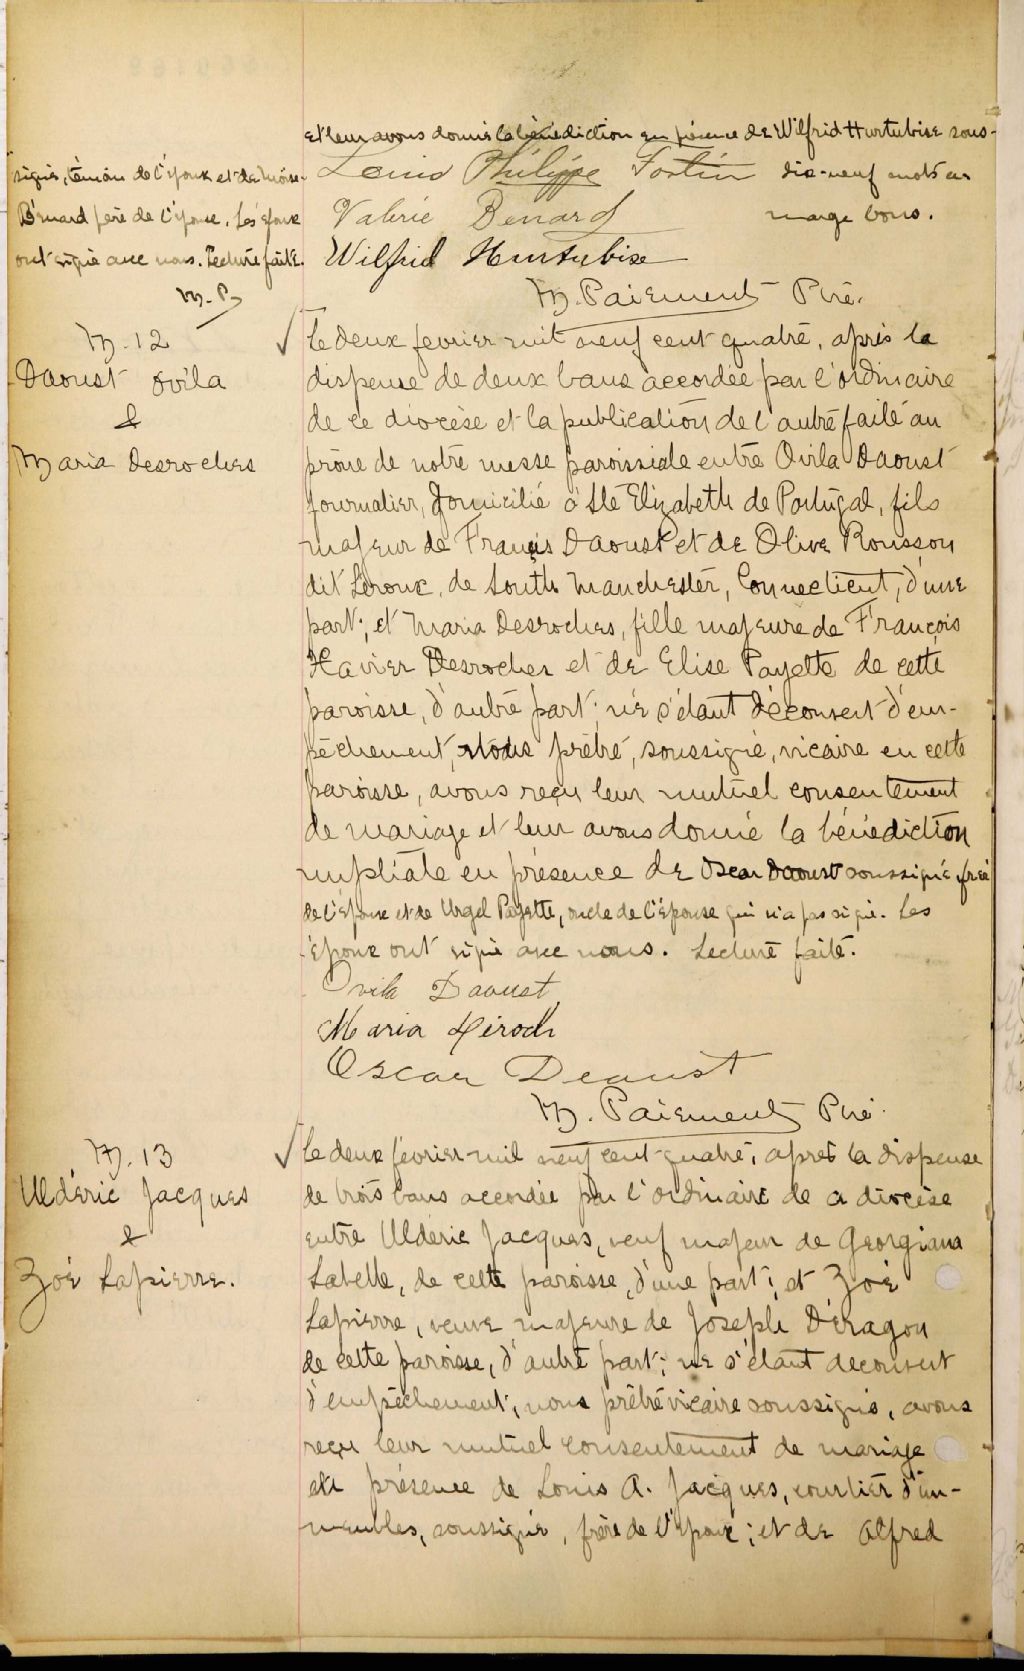 et leur avons donné la bénédiction en présence de Wilfrid Hurtubise sous-
signé, témoin de l'époux et de Moïse
Bénard père de l'épouse. Les époux
ont signé avec nous. Lecture faite.
M. P.
Louis Philippe Fortin dix-neuf mots en
Valérie Bénard marge bons.
Wilfrid Hurtubise
M. Paiement Ptre.
M. 12
Daoust Ovila
&
Maria Desroches
Le deux fevrier mil neuf cent quatre, après la
dispense de deux bans accordée par l'ordinaire
de ce diocèse et la publication de l'autre faite au
prône de notre messe paroissiale entre Ovila Daoust
journalier, domicilié à Ste Elizabeth de Portugal, fils
majeur de Francis Daoust et de Olive Rousson
dit Leroux, de South Manchester, Connecticut, d'une
part; et Maria Desroches, fille majeure de François
Xavier Desroches et de Elise Payette de cette
paroisse, d'autre part; ne s'étant découvert d'em-
pêchement, Nous prêtre, soussigné, vicaire en cette
paroisse, avons reçu leur mutuel consentement
de mariage et leur avons donné la bénédiction
nuptiale en présence de Oscar Daoust soussigné frère
de l'époux et de Urgel Payette, oncle de l'épouse qui n'a pas signé. Les
époux ont signé avec nous. Lecture faite.
Ovila Daoust
Maria Déroch
Oscar Deaust
M. Paiement Ptre.
M. 13
Uldéric Jacques
&
Zoé Lapierre.
Le deux février mil neuf cent quatre, après la dispense
de trois bans accordée par l'ordinaire de ce diocèse
entre Uldéric Jacques, veuf majeur de Georgiana
Labelle, de cette paroisse, d'une part; et Zoé
Lapierre, veuve majeure de Joseph Déragon
de cette paroisse, d'autre part; ne s'étant découvert
d'empêchement, nous prêtre vicaire soussigné, avons
reçu leur mutuel consentement de mariage
en présence de Louis A. Jacques, courtier d'im-
meubles, soussigné, frère de l'époux; et de Alfred